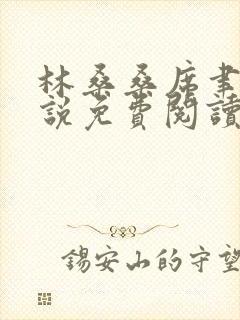 林桑桑席聿
說免費閱讀
錫安山的守望